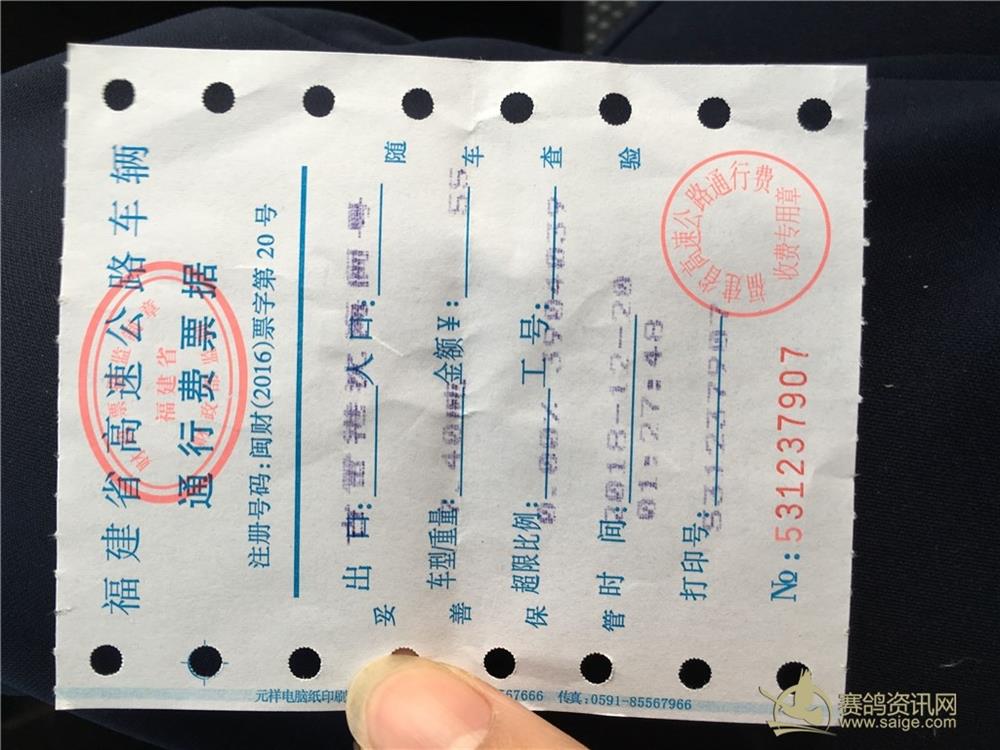 福建省高速公路车辆
通行费票据
福建省
注册号码:闽财(2016)票字第20号
出口:
入口:
车型/重量:
金额¥: 55
超限比例:
工号:
时间: 2018-12-20
01:27:48
打印号: 5312379907
№:5312379907
随车查验
妥善保管
福建省高速公路通行费
收费专用章
元祥电脑纸印刷
67666 传真:0591-85567966
赛鸽资讯网
www.saige.com